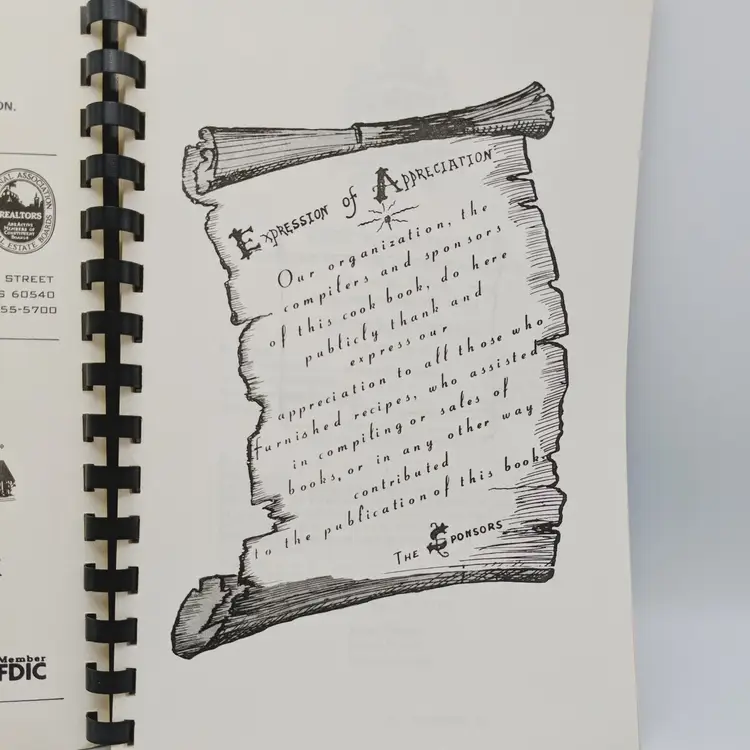 ON.
REALTORS
STREET
S 60540
55-5700
Member
FDIC
Expression of Appreciation
Our organization, the
compilers and sponsors
of this cook book, do here
publicly thank and
express our
appreciation to all those who
furnished recipes, who assisted
in compiling or sales of
books, or in any other way
contributed
to the publication of this book.
The Sponsors